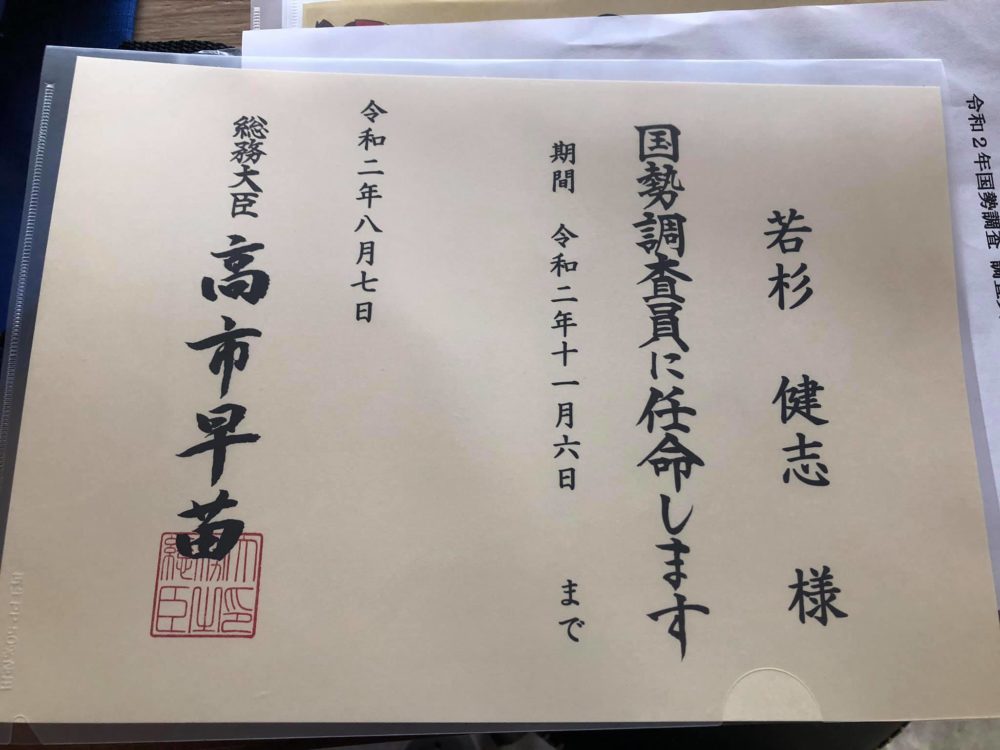 若杉 健志 様
国勢調査員に任命します
期間 令和二年十一月六日 まで
令和二年八月七日
総務大臣 高市早苗
令和2年国勢調査